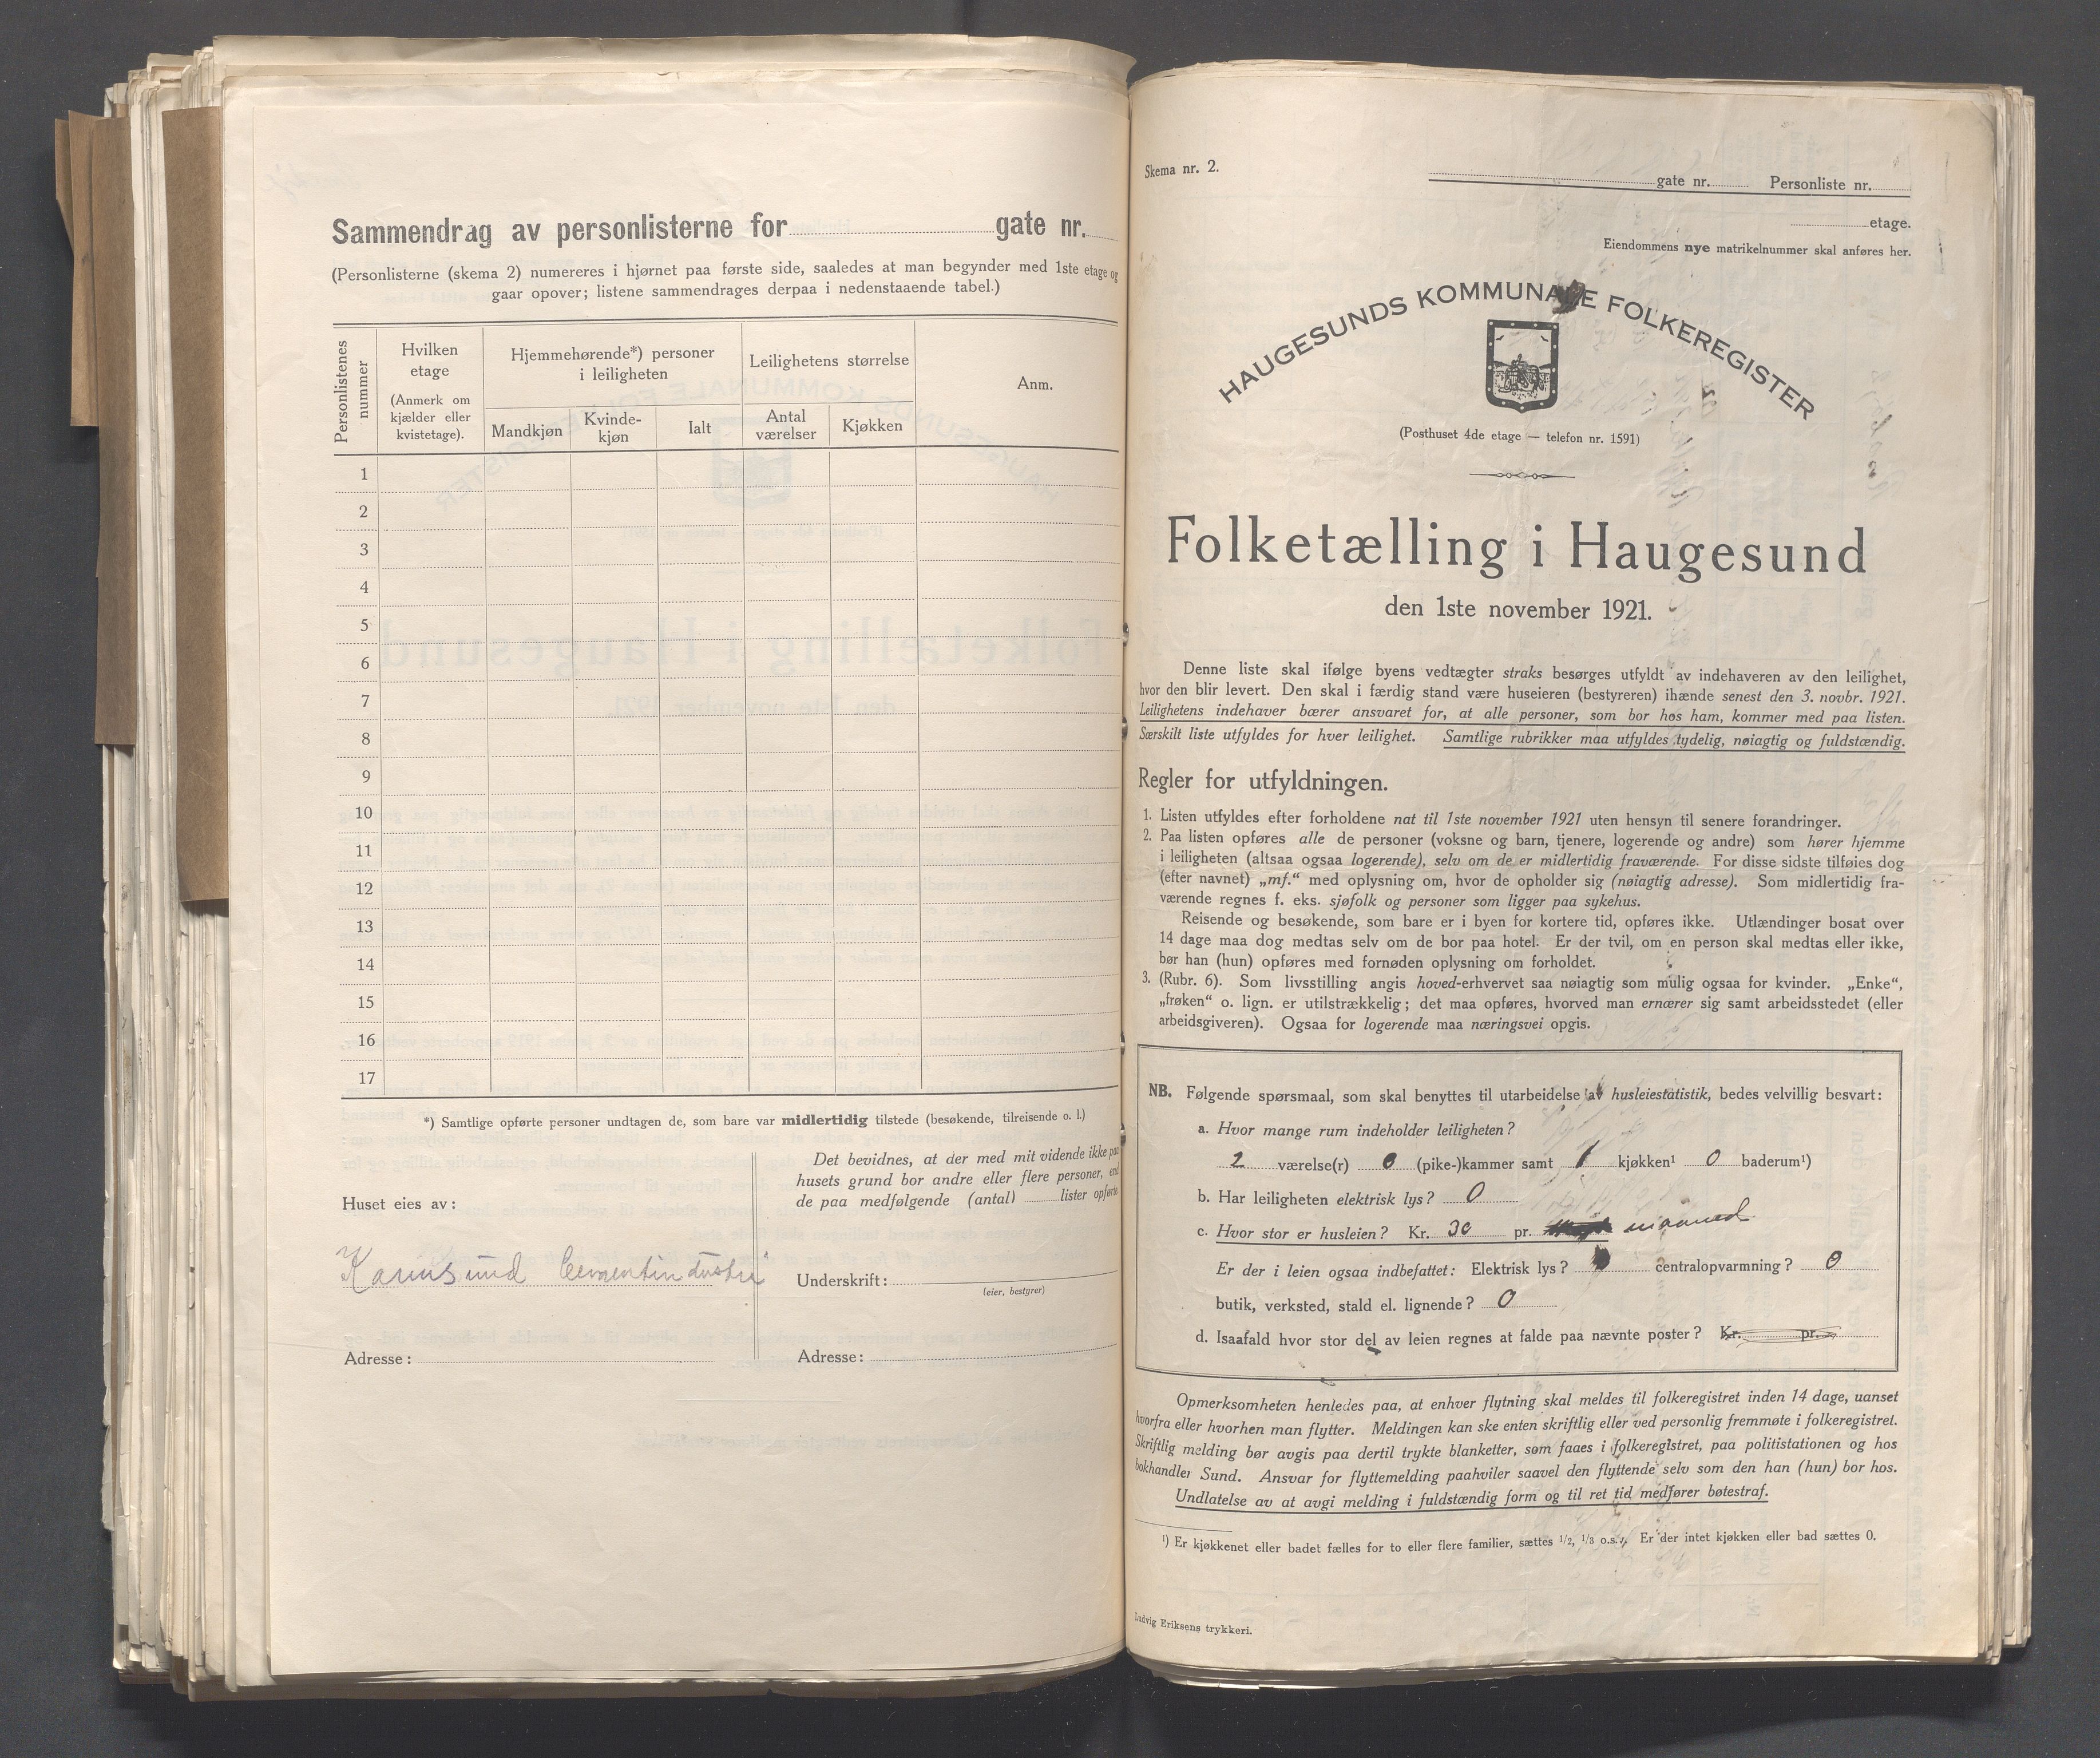 Sammendrag av personlisterne for gate nr.
(Personlisterne (skema 2) numereres i hjørnet paa første side, saaledes at man begynder med 1ste etage og
gaar opover; listene sammendrages derpaa i nedenstaaende tabel.)
Personlistenes nummer
Hvilken etage
(Anmerk om kjælder eller kvistetage).
Hjemmehørende*) personer i leiligheten
Mandkjøn
Kvindekjøn
Ialt
Leilighetens størrelse
Antal værelser
Kjøkken
Anm.
1
2
3
4
5
6
7
8
9
10
11
12
13
14
15
16
17
*) Samtlige opførte personer undtagen de, som bare var midlertidig tilstede (besøkende, tilreisende o. l.)
Huset eies av:
Karmsund Cementindustri
Adresse:
Det bevidnes, at der med mit vidende ikke paa
husets grund bor andre eller flere personer, end
de paa medfølgende (antal) lister opførte
Underskrift:
(eier, bestyrer)
Adresse:
Skema nr. 2.
gate nr. Personliste nr.
etage.
Eiendommens nye matrikelnummer skal anføres her.
HAUGESUNDS KOMMUNALE FOLKEREGISTER
(Posthuset 4de etage — telefon nr. 1591)
Folketælling i Haugesund
den 1ste november 1921.
Denne liste skal ifølge byens vedtægter straks besørges utfyldt av indehaveren av den leilighet,
hvor den blir levert. Den skal i færdig stand være huseieren (bestyreren) ihænde senest den 3. novbr. 1921.
Leilighetens indehaver bærer ansvaret for, at alle personer, som bor hos ham, kommer med paa listen.
Særskilt liste utfyldes for hver leilighet. Samtlige rubrikker maa utfyldes tydelig, nøiagtig og fuldstændig.
Regler for utfyldningen.
1. Listen utfyldes efter forholdene nat til 1ste november 1921 uten hensyn til senere forandringer.
2. Paa listen opføres alle de personer (voksne og barn, tjenere, logerende og andre) som hører hjemme
i leiligheten (altsaa ogsaa logerende), selv om de er midlertidig fraværende. For disse sidste tilføies dog
(efter navnet) „mf.“ med oplysning om, hvor de opholder sig (nøiagtig adresse). Som midlertidig fra-
værende regnes f. eks. sjøfolk og personer som ligger paa sykehus.
Reisende og besøkende, som bare er i byen for kortere tid, opføres ikke. Utlændinger bosat over
14 dage maa dog medtas selv om de bor paa hotel. Er der tvil, om en person skal medtas eller ikke,
bør han (hun) opføres med fornøden oplysning om forholdet.
3. (Rubr. 6). Som livsstilling angis hoved-erhvervet saa nøiagtig som mulig ogsaa for kvinder. „Enke“,
„frøken“ o. lign. er utilstrækkelig; det maa opføres, hvorved man ernærer sig samt arbeidsstedet (eller
arbeidsgiveren). Ogsaa for logerende maa næringsvei opgis.
NB. Følgende spørsmaal, som skal benyttes til utarbeidelse av husleiestatistik, bedes velvillig besvart:
a. Hvor mange rum indeholder leiligheten?
2 værelse(r) 0 (pike-)kammer samt 1 kjøkken¹ 0 baderum¹)
b. Har leiligheten elektrisk lys? 0
c. Hvor stor er husleien? Kr. 30 pr. maaned
Er der i leien ogsaa indbefattet: Elektrisk lys? centralopvarmning? 0
butik, verksted, stald el. lignende? 0
d. Isaafald hvor stor del av leien regnes at falde paa nævnte poster? Kr. pr.
Opmerksomheten henledes paa, at enhver flytning skal meldes til folkeregistret inden 14 dage, uanset
hvorfra eller hvorhen man flytter. Meldingen kan ske enten skriftlig eller ved personlig fremmøte i folkeregistret.
Skriftlig melding bør avgis paa dertil trykte blanketter, som faaes i folkeregistret, paa politistationen og hos
bokhandler Sund. Ansvar for flyttemelding paahviler saavel den flyttende selv som den han (hun) bor hos.
Undlatelse av at avgi melding i fuldstændig form og til ret tid medfører bøtestraf.
¹) Er kjøkkenet eller badet fælles for to eller flere familier, sættes 1/2, 1/3 o.s.v. Er der intet kjøkken eller bad sættes 0.
Ludvig Eriksens trykkeri.